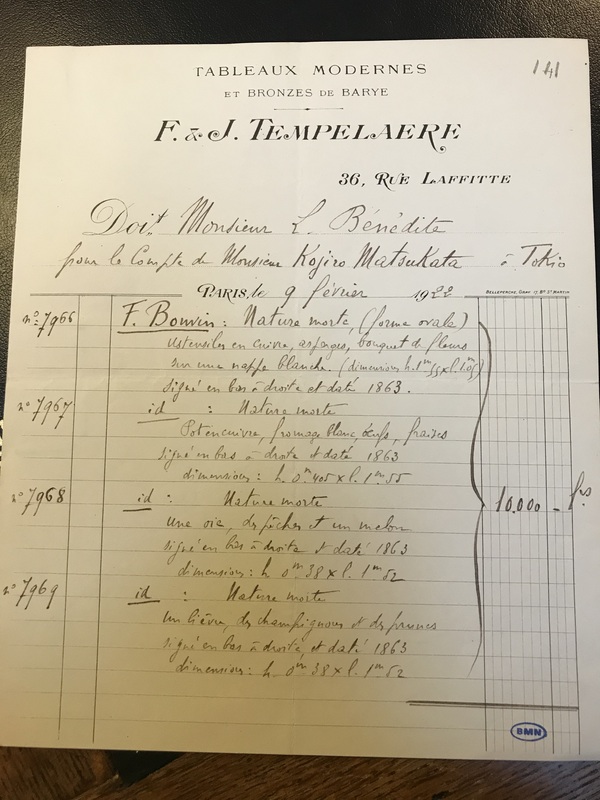 141
TABLEAUX MODERNES
ET BRONZES DE BARYE
F. & J. TEMPELAERE
36, RUE LAFFITTE
Doit Monsieur L. Bénédite
pour le Compte de Monsieur Kojiro Matsukata à Tokio
PARIS, le 9 février 1922
BELLEFERCHE, GRAV. 17 Bd St MARTIN
n° 7966 F. Bonvin : Nature morte, (forme ovale)
Ustensiles en cuivre, asperges, bouquet de fleurs
sur une nappe blanche. (dimensions h. 1m55 x l. 1.05)
signé en bas à droite et daté 1863.
n° 7967 id : Nature morte
Pot en cuivre, fromage blanc, œufs, fraises
signé en bas à droite et daté 1863
dimensions : h. 0m405 x l. 1m55
n° 7968 id : Nature morte 10.000 - frs
Une oie, des pêches et un melon
signé en bas à droite et daté 1863
dimensions : h 0m38 x l. 1m52
n° 7969 id : Nature morte
Un lièvre, des champignons et des prunes
signé en bas à droite, et daté 1863
dimensions : h. 0m38 x l. 1m52
BMN